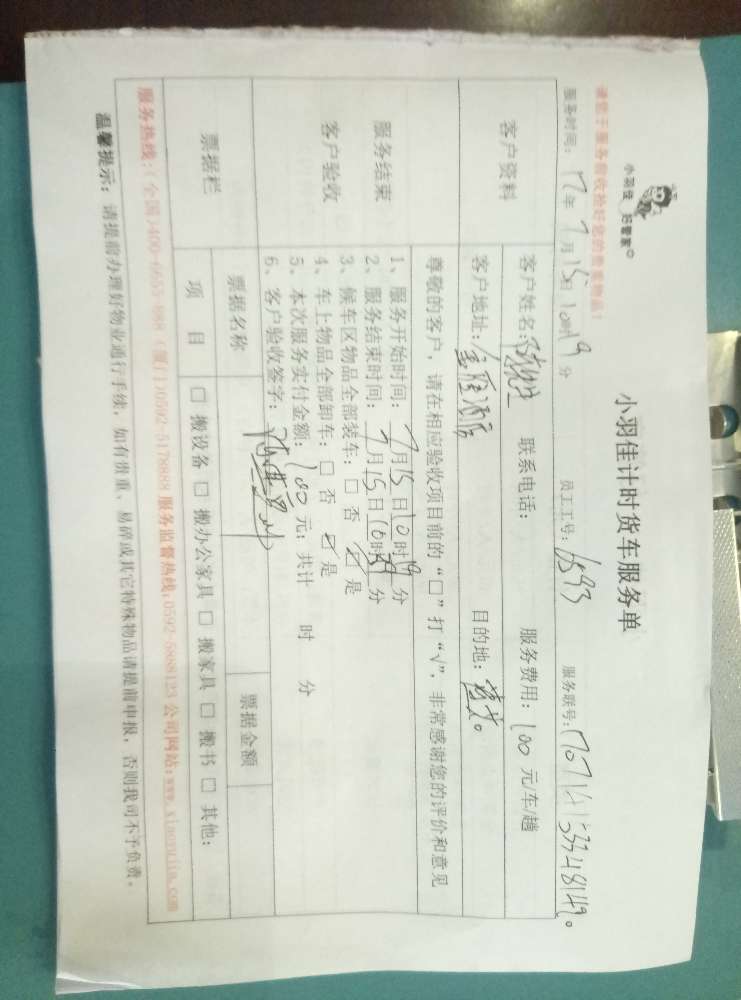 小羽佳 好管家
小羽佳计时货车服务单
请您于服务前收拾好您的贵重物品！
服务时间：17年7月15日10时19分 员工工号：6593 服务联号：
客户资料
客户姓名： 联系电话： 服务费用：100元/车/趟
客户地址： 目的地：
尊敬的客户，请在相应验收项目前的“□”打“√”，非常感谢您的评价和意见
服务结束
客户验收
1、服务开始时间：7月15日10时19分
2、服务结束时间：7月15日10时分
3、候车区物品全部装车：□否 ☑是
4、车上物品全部卸车：□否 ☑是
5、本次服务实付金额：100元；共计 时 分
6、客户验收签字：
票据栏
票据名称 票据金额
项目 □搬设备 □搬办公家具 □搬家具 □搬书 □其他：
服务热线：（全国）400-6655-888（厦门）0592-5178888 服务监督热线：0592-5888123 公司网站：www.xiaoyujia.com
温馨提示：请提前办理好物业通行手续，如有贵重、易碎或其它特殊物品请提前申报，否则我司不予负责。